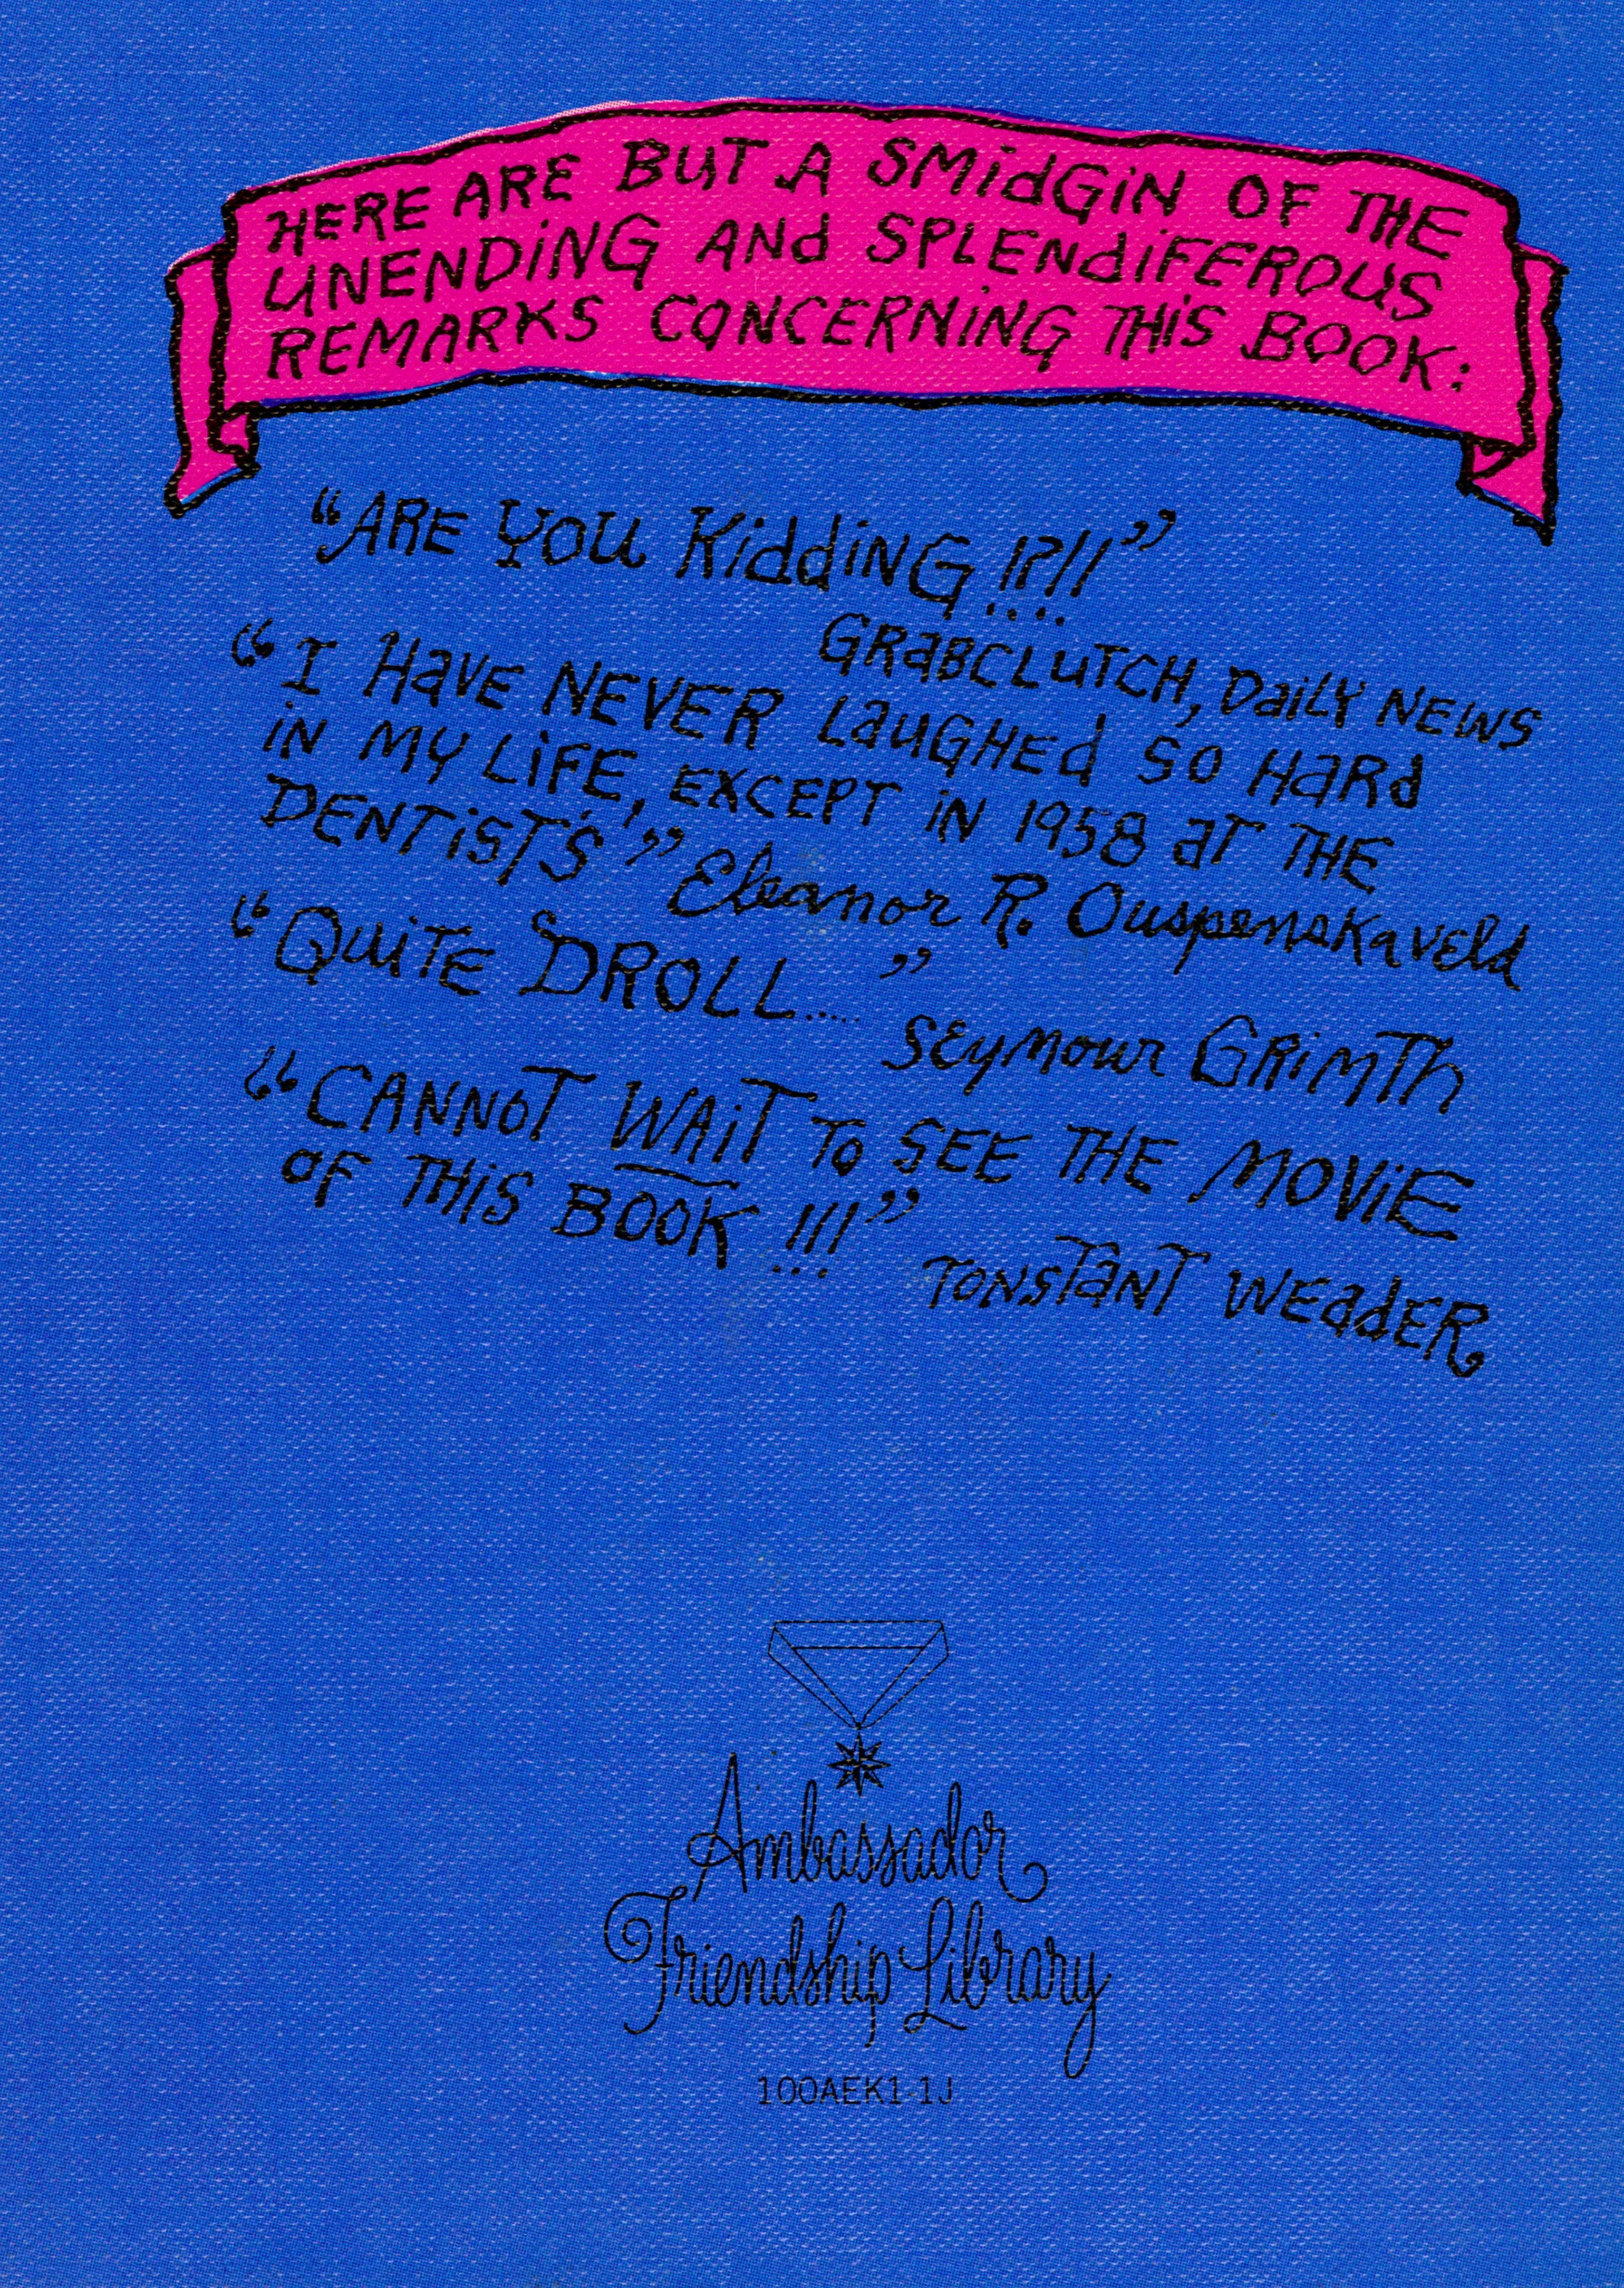 HERE ARE BUT A SMidGiN OF THE
UNENDiNG ANd SPLENdiFEROUS
REMARKS CONCERNiNG THiS BOOK:
“ARE YOU KiddiNG !?!!”
GRaBCLUTCH, DaiLY NEWS
“I HaVE NEVER LaUGHEd SO HaRd
iN MY LiFE, EXCEPT iN 1958 aT THE
DENTiST'S!” Eleanor R. Ouspenskaveld
“QUiTE DROLL.....”
SEymour GRiMTh
“CANNOT WAiT TO SEE THE MOViE
OF THiS BOOK !!!”
TONSTaNT WEadER
Ambassador
Friendship Library
100AEK1-1J